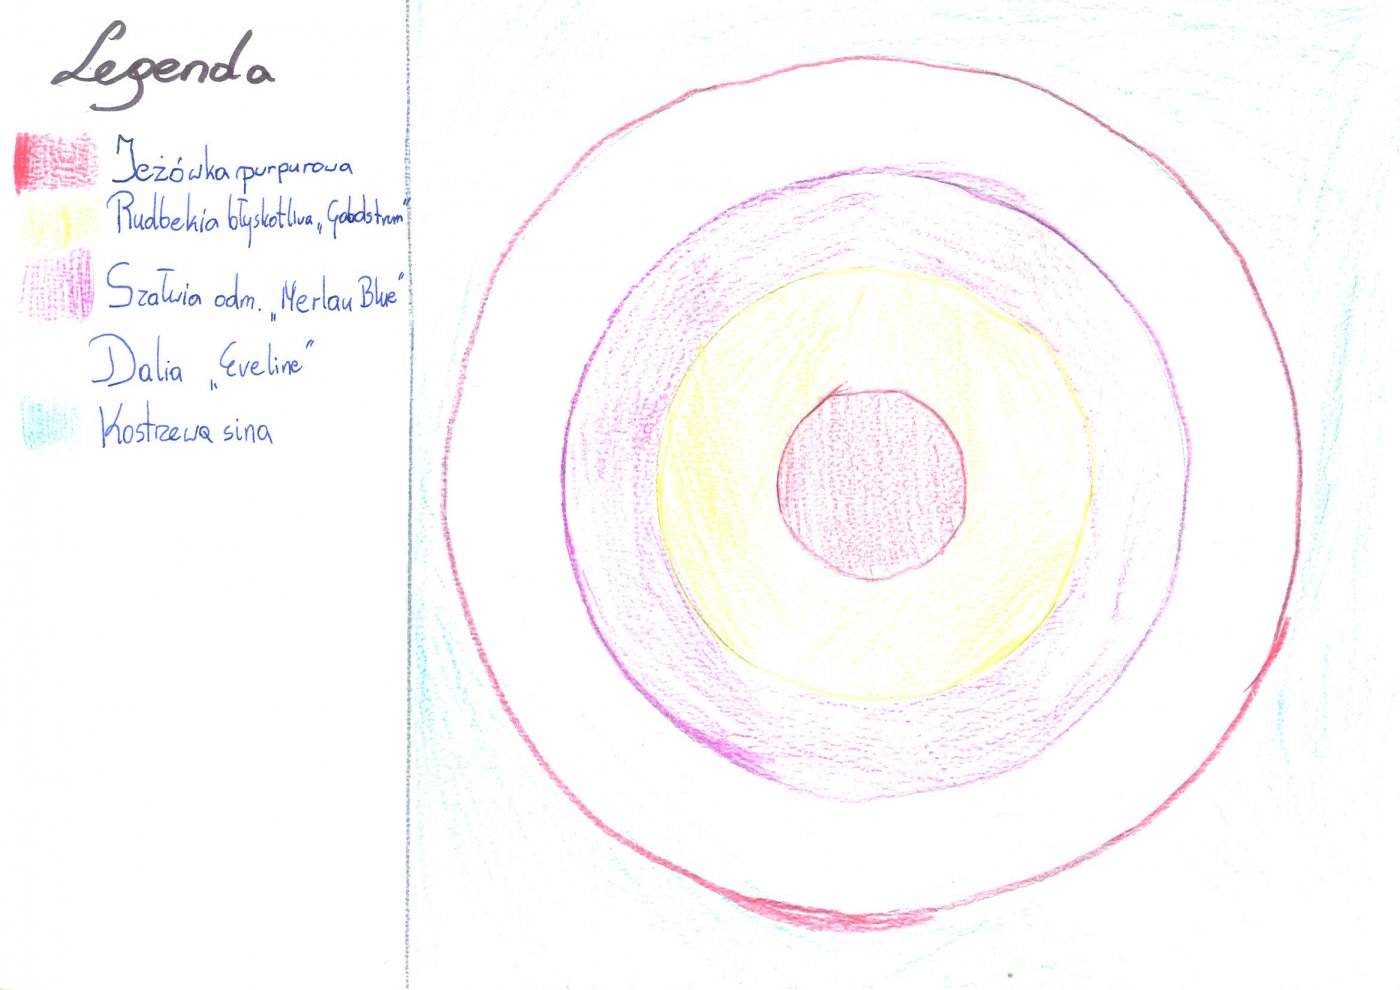 Legenda
Jeżówka purpurowa
Rudbekia błyskotliwa „Goldstrum”
Szałwia odm. „Merlau Blue”
Dalia „Eveline”
Kostrzewa sina